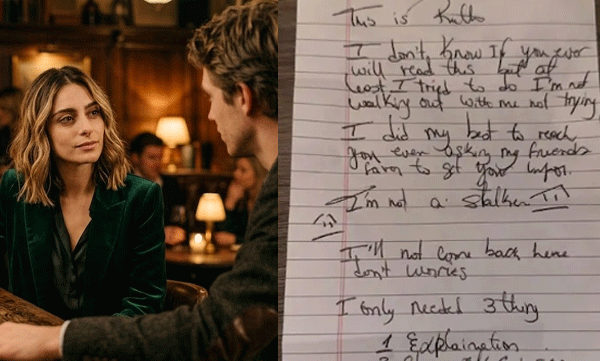 This is
I don't, know If you ever
will read this but at
least I tried to do I'm not
walking out with me not trying
I did my best to reach
you even asking my friends
to get your infor.
I'm not a stalker
I'll not come back here
don't worries
I only needed 3 thing
1 Explaination